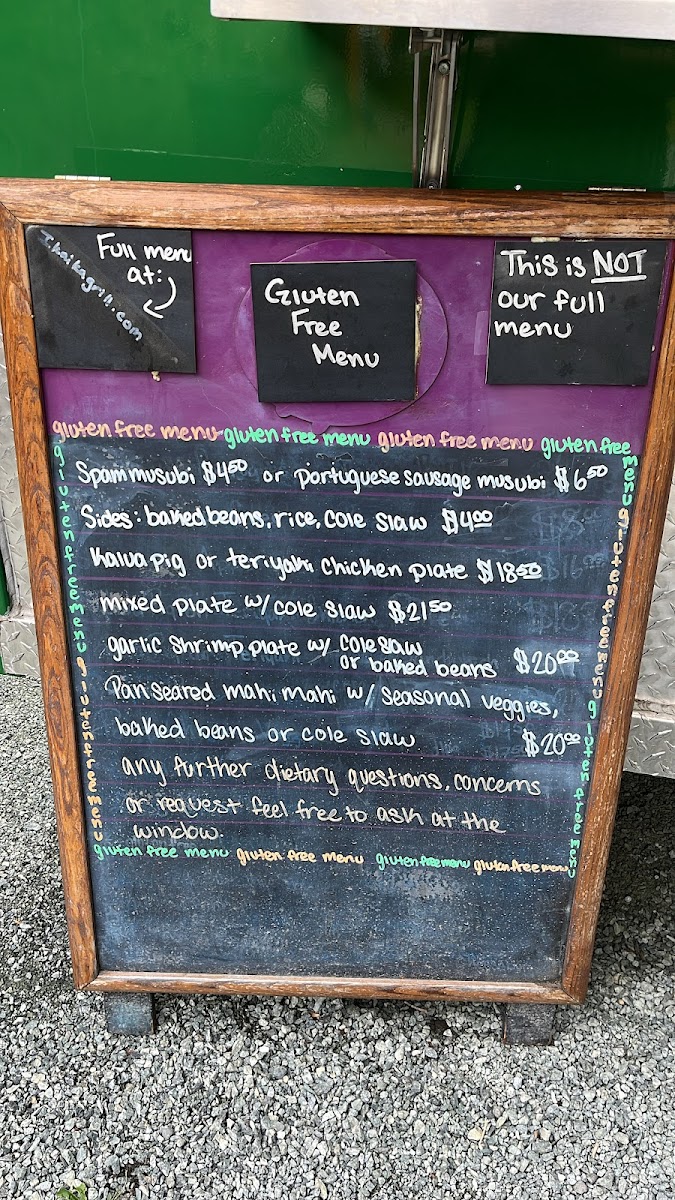 Full menu
at:
Ikaikagrill.com
Gluten
Free
Menu
This is NOT
our full
menu
gluten free menu gluten free menu gluten free menu gluten free
menu
gluten free menu
gluten free menu
gluten free menu
gluten free menu
Spam musubi $4.50 or portuguese sausage musubi $6.50
Sides: baked beans, rice, cole slaw $4.00
Kalua pig or teriyaki chicken plate $18.50
mixed plate w/ cole slaw $21.50
garlic shrimp plate w/ cole slaw
or baked beans $20.00
Pan seared mahi mahi w/ seasonal veggies,
baked beans or cole slaw $20.00
any further dietary questions, concerns
or request feel free to ask at the
window.
gluten free menu gluten free menu gluten free menu gluten free menu